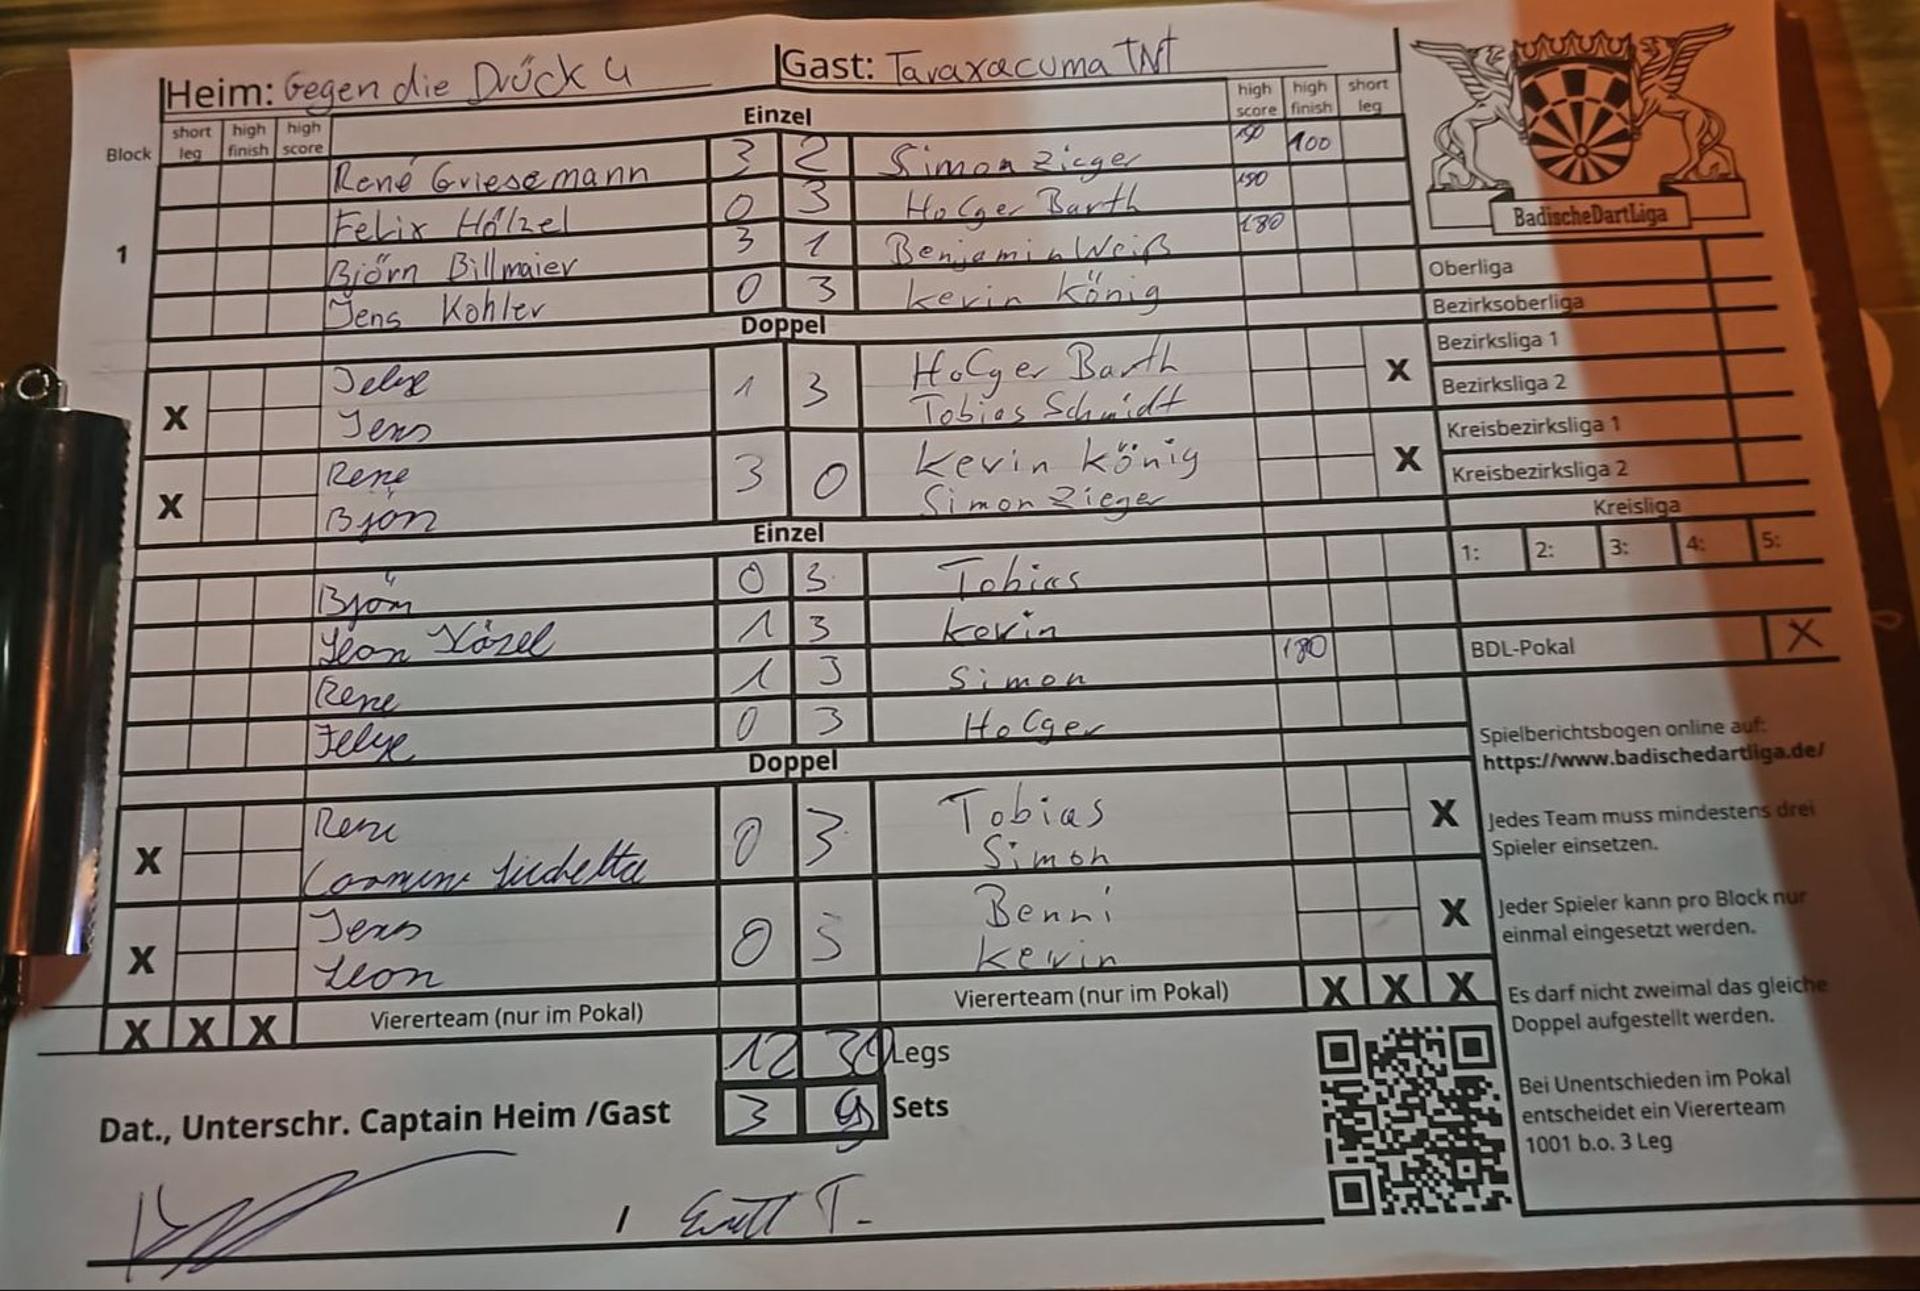 Heim: Gegen die Drück 4 Gast: Taraxacuma TNT
Einzel
Block short leg high finish high score high score high finish short leg
René Griesemann 3 2 Simon Zieger 180 100
Felix Hölzel 0 3 Holger Barth 180
1 Björn Billmaier 3 1 Benjamin Weiß 180
Jens Kohler 0 3 Kevin König
Doppel
X Felix 1 3 Holger Barth X
Jens Tobias Schmidt
X Rene 3 0 Kevin König X
Björn Simon Zieger
Einzel
Björn 0 3 Tobias
Leon 1 3 Kevin
Rene 1 3 Simon 180
Felix 0 3 Holger
Doppel
X Rene 0 3 Tobias X
Simon
X Jens 0 3 Benni X
Leon Kevin
X X X Viererteam (nur im Pokal) Viererteam (nur im Pokal) X X X
12 Legs
3 9 Sets
Dat., Unterschr. Captain Heim /Gast
/
BadischeDartLiga
Oberliga
Bezirksoberliga
Bezirksliga 1
Bezirksliga 2
Kreisbezirksliga 1
Kreisbezirksliga 2
Kreisliga
1: 2: 3: 4: 5:
BDL-Pokal X
Spielberichtsbogen online auf:
https://www.badischedartliga.de/
Jedes Team muss mindestens drei
Spieler einsetzen.
Jeder Spieler kann pro Block nur
einmal eingesetzt werden.
Es darf nicht zweimal das gleiche
Doppel aufgestellt werden.
Bei Unentschieden im Pokal
entscheidet ein Viererteam
1001 b.o. 3 Leg